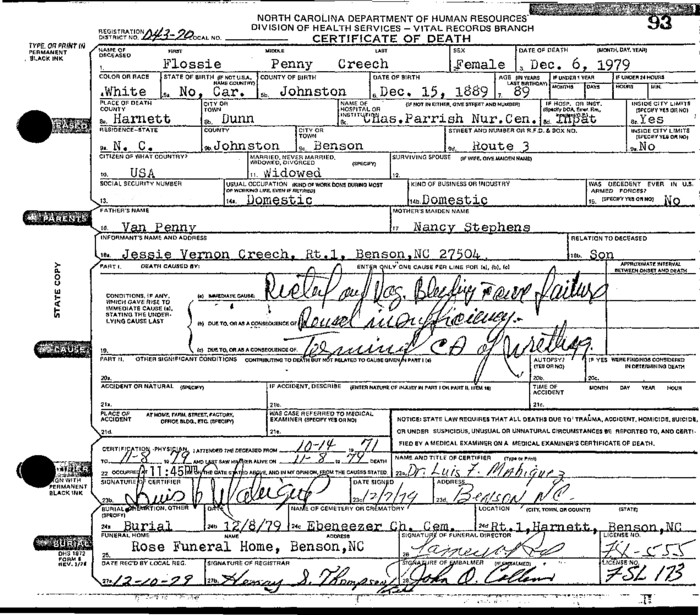 NORTH CAROLINA DEPARTMENT OF HUMAN RESOURCES
DIVISION OF HEALTH SERVICES – VITAL RECORDS BRANCH
CERTIFICATE OF DEATH
93
REGISTRATION DISTRICT NO. 043-20 LOCAL NO.
TYPE, OR PRINT IN PERMANENT BLACK INK
NAME OF DECEASED FIRST MIDDLE LAST SEX DATE OF DEATH (MONTH, DAY, YEAR)
1. Flossie Penny Creech 2. Female 3. Dec. 6, 1979
COLOR OR RACE STATE OF BIRTH (IF NOT USA, NAME COUNTRY) COUNTY OF BIRTH DATE OF BIRTH AGE (IN YEARS LAST BIRTHDAY) IF UNDER 1 YEAR IF UNDER 24 HOURS
MONTHS DAYS HOURS MIN.
4. White 5a. No, Car. 5b. Johnston 6. Dec. 15, 1889 7. 89
PLACE OF DEATH COUNTY CITY OR TOWN NAME OF HOSPITAL OR INSTITUTION (IF NOT IN EITHER, GIVE STREET AND NUMBER) IF HOSP. OR INST. INSIDE CITY LIMITS
8a. Harnett 8b. Dunn 8c. Chas.Parrish Nur.Cen. 8d. Inpat 8e. Yes
RESIDENCE-STATE COUNTY CITY OR TOWN STREET AND NUMBER OR R.F.D. & BOX NO. INSIDE CITY LIMITS (SPECIFY YES OR NO)
9a. N. C. 9b. Johnston 9c. Benson 9d. Route 3 9e. No
CITIZEN OF WHAT COUNTRY? MARRIED, NEVER MARRIED, WIDOWED, DIVORCED (SPECIFY) SURVIVING SPOUSE (IF WIFE, GIVE MAIDEN NAME)
10. USA 11. Widowed 12.
SOCIAL SECURITY NUMBER USUAL OCCUPATION (KIND OF WORK DONE DURING MOST OF WORKING LIFE, EVEN IF RETIRED) KIND OF BUSINESS OR INDUSTRY WAS DECEDENT EVER IN U.S. ARMED FORCES?
13. 14a. Domestic 14b. Domestic 15. (SPECIFY YES OR NO) No
PARENTS
FATHER'S NAME MOTHER'S MAIDEN NAME
16. Van Penny 17. Nancy Stephens
INFORMANT'S NAME AND ADDRESS RELATION TO DECEASED
18a. Jessie Vernon Creech, Rt.1, Benson,NC 27504 18b. Son
STATE COPY
PART I. DEATH CAUSED BY: ENTER ONLY ONE CAUSE PER LINE FOR (a), (b), (c) APPROXIMATE INTERVAL BETWEEN ONSET AND DEATH
CONDITIONS, IF ANY, WHICH GAVE RISE TO IMMEDIATE CAUSE (a), STATING THE UNDERLYING CAUSE LAST
(a) IMMEDIATE CAUSE: Rectal and Vag. Bleeding failure
(b) DUE TO, OR AS A CONSEQUENCE OF: Renal insufficiency.
CAUSE
19. (c) DUE TO, OR AS A CONSEQUENCE OF: Terminal CA of Urethra
PART II. OTHER SIGNIFICANT CONDITIONS CONTRIBUTING TO DEATH BUT NOT RELATED TO CAUSE GIVEN IN PART I (a) AUTOPSY? (YES OR NO) IF YES WERE FINDINGS CONSIDERED IN DETERMINING DEATH
20a. 20b. 20c.
ACCIDENT OR NATURAL (SPECIFY) IF ACCIDENT, DESCRIBE (ENTER NATURE OF INJURY IN PART I OR PART II, ITEM 19) TIME OF ACCIDENT MONTH DAY YEAR HOUR
21a. 21b. 21c.
PLACE OF ACCIDENT AT HOME, FARM, STREET, FACTORY, OFFICE BLDG., ETC. (SPECIFY) WAS CASE REFERRED TO MEDICAL EXAMINER (SPECIFY YES OR NO)
21d. 21e.
NOTICE: STATE LAW REQUIRES THAT ALL DEATHS DUE TO TRAUMA, ACCIDENT, HOMICIDE, SUICIDE,
OR UNDER SUSPICIOUS, UNUSUAL OR UNNATURAL CIRCUMSTANCES BE REPORTED TO, AND CERTIFIED BY A MEDICAL EXAMINER ON A MEDICAL EXAMINER'S CERTIFICATE OF DEATH.
CERTIFICATION - PHYSICIAN: I ATTENDED THE DECEASED FROM 10-14 71
TO 11-8 79 AND LAST SAW ALIVE ON 11-8-79 DEATH
22. OCCURRED AT 11:45 ON THE DATE STATED ABOVE, AND IN MY OPINION, FROM THE CAUSES STATED.
NAME AND TITLE OF CERTIFIER (Type or Print)
23a. Dr. Luis F.
SIGNATURE OF CERTIFIER DATE SIGNED ADDRESS
23b. Luis 23c. 12/7/79 23d. Benson NC.
WITH PERMANENT BLACK INK
BURIAL, CREMATION, OTHER (SPECIFY) DATE NAME OF CEMETERY OR CREMATORY LOCATION (CITY, TOWN, OR COUNTY) (STATE)
24a. Burial 24b. 12/8/79 24c. Ebeneezer Ch. Cem. 24d. Rt.1, Harnett, Benson,NC
BURIAL
FUNERAL HOME NAME ADDRESS SIGNATURE OF FUNERAL DIRECTOR LICENSE NO.
25. Rose Funeral Home, Benson,NC 26. FL-555
DHS 1872
FORM 8
REV. 1/78
DATE REC'D BY LOCAL REG. SIGNATURE OF REGISTRAR SIGNATURE OF EMBALMER (IF EMBALMED) LICENSE NO.
27a. 12-10-79 27b. Henry S. Thompson 28. John O. Collins FSL 173